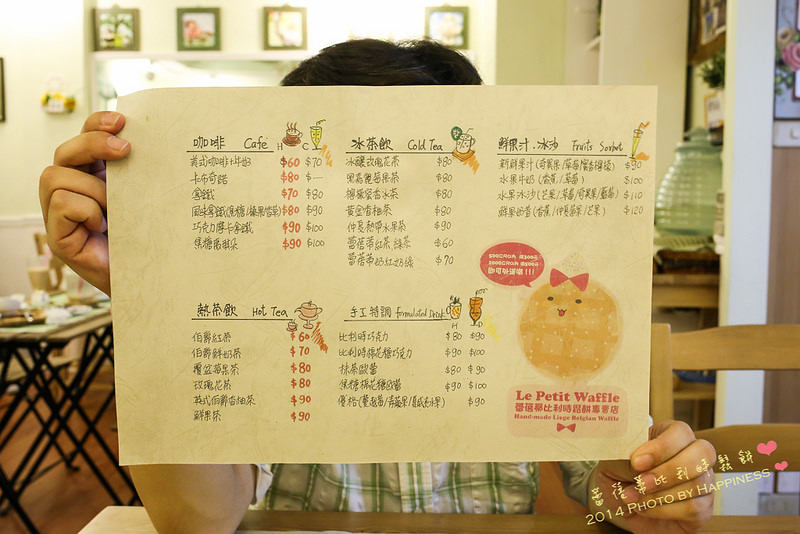 咖啡 Café H C
美式咖啡+牛奶 $60 $70
卡布奇諾 $80 $—
拿鐵 $70 $80
風味拿鐵(焦糖/榛果/香草) $80 $90
巧克力摩卡拿鐵 $90 $100
焦糖瑪琪朵 $90 $100
冰茶飲 Cold Tea
冰釀玫瑰花茶 $80
黑嘉麗莓果茶 $80
檸檬草香冰茶 $80
黃金香柚茶 $80
仲夏熱帶水果茶 $90
蕾蓓蒂紅茶.綠茶 $60
蕾蓓蒂奶紅.奶綠 $70
鮮果汁.冰沙 Fruits Sorbet
新鮮果汁 $90
水果牛奶(香蕉/草莓) $100
水果冰沙(芒果/草莓/奇異果/藍莓) $110
鮮果奶昔(香蕉/仲夏莓果/芒果) $120
熱茶飲 Hot Tea
伯爵紅茶 $60
伯爵鮮奶茶 $70
覆盆莓果茶 $80
玫瑰花茶 $80
英式伯爵香柚茶 $90
鮮果茶 $90
手工特調 Formulated Drink H
比利時巧克力 $80 $90
比利時棉花糖巧克力 $90 $100
抹茶歐蕾 $80 $90
焦糖棉花糖歐蕾 $90 $100
優格 $90
Le Petit Waffle
蕾蓓蒂比利時鬆餅專賣店
Hand-made Liege Belgian Waffle
蕾蓓蒂比利時鬆餅
2014 PHOTO BY HAPPINESS